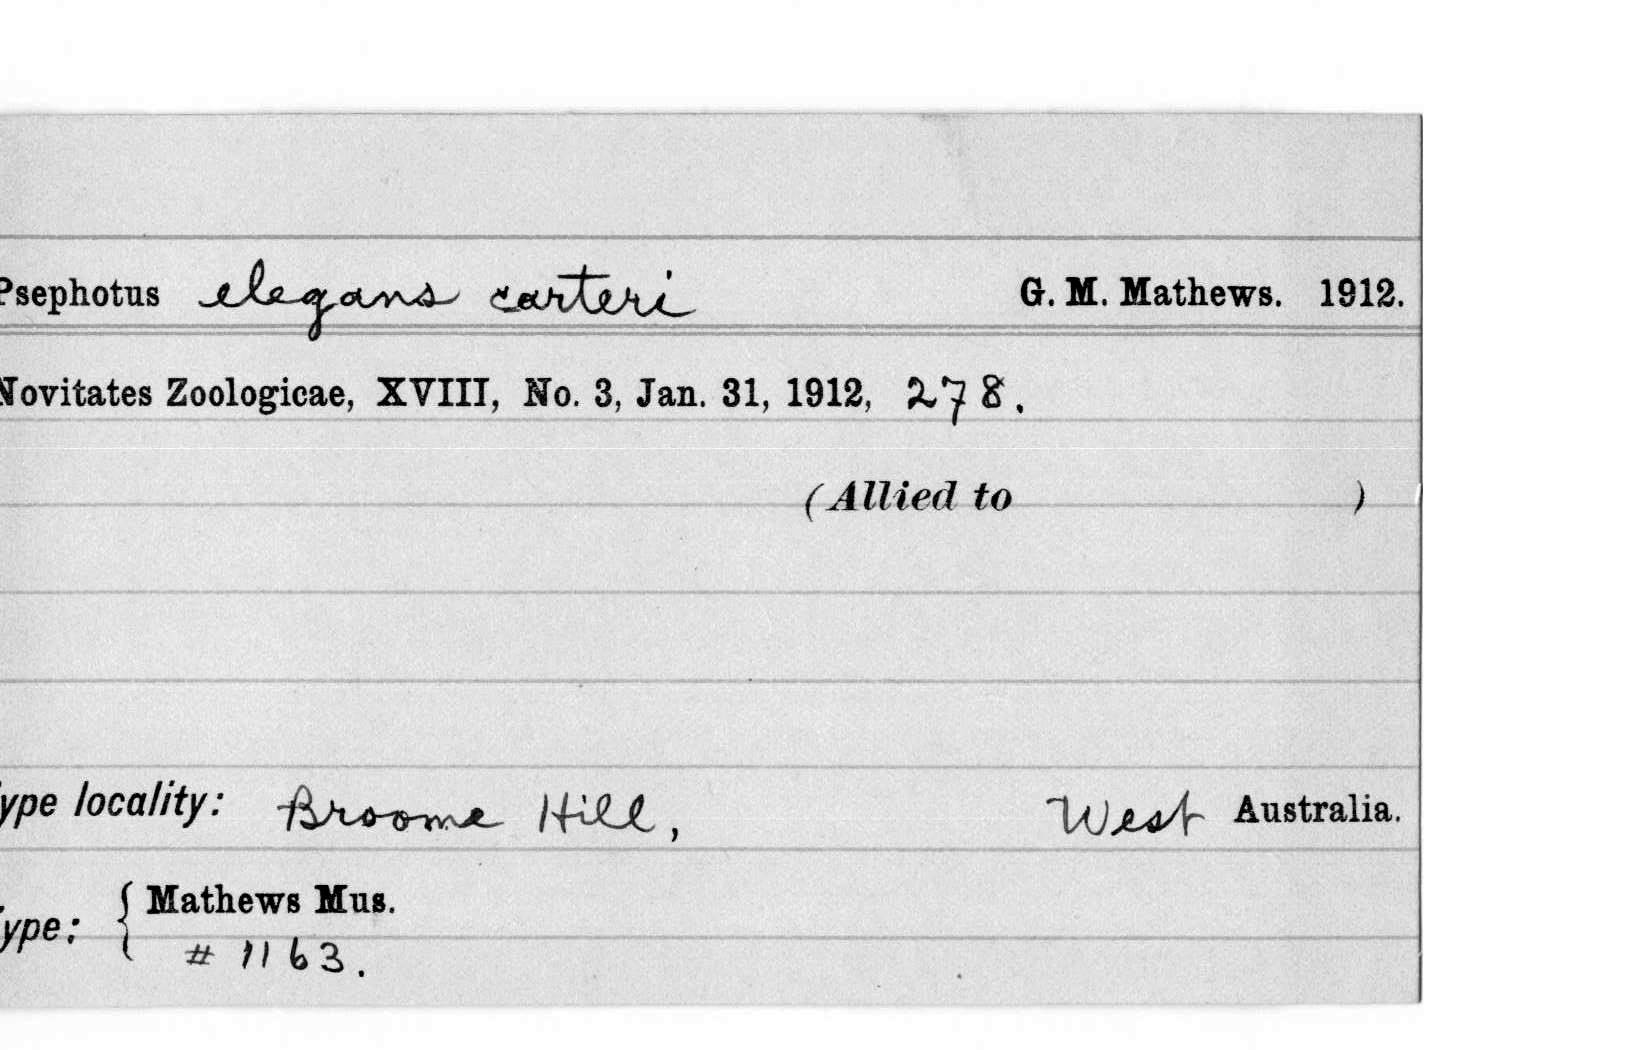 Psephotus elegans carteri G. M. Mathews. 1912.
Novitates Zoologicae, XVIII, No. 3, Jan. 31, 1912, 278.
(Allied to )
ype locality: Broome Hill, West Australia.
ype: { Mathews Mus.
# 1163.